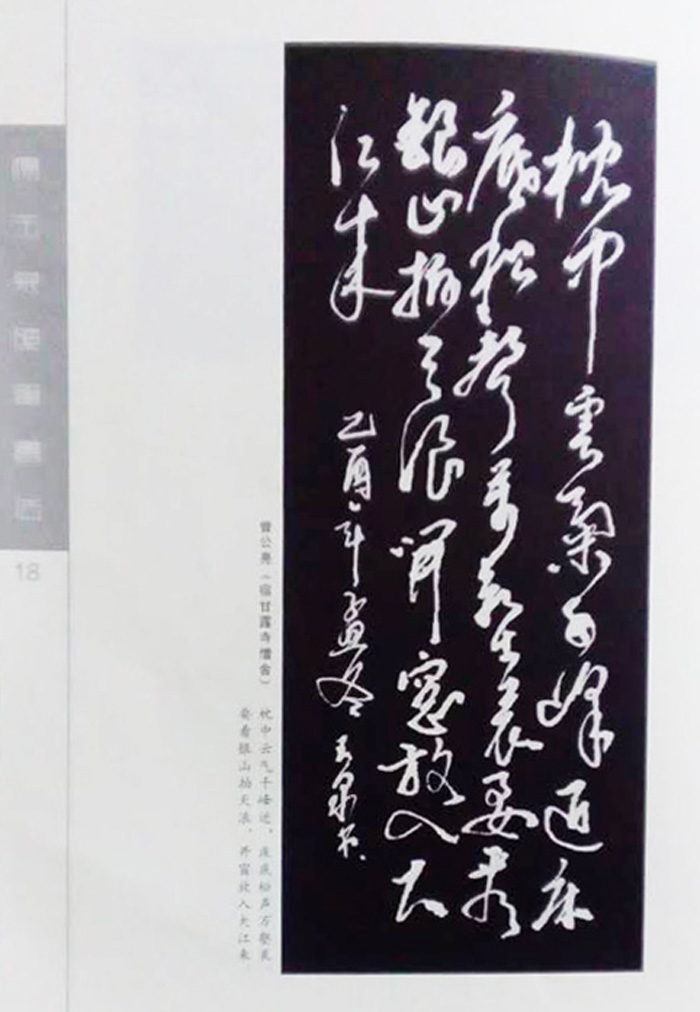 枕中雲氣千峰近床
底松聲万壑哀要看
銀山拍天浪開窗放入大
江来
乙酉年孟冬 玉泉书
曾公亮《宿甘露寺僧舍》
枕中云气千峰近，床底松声万壑哀。
要看银山拍天浪，开窗放入大江来。
18